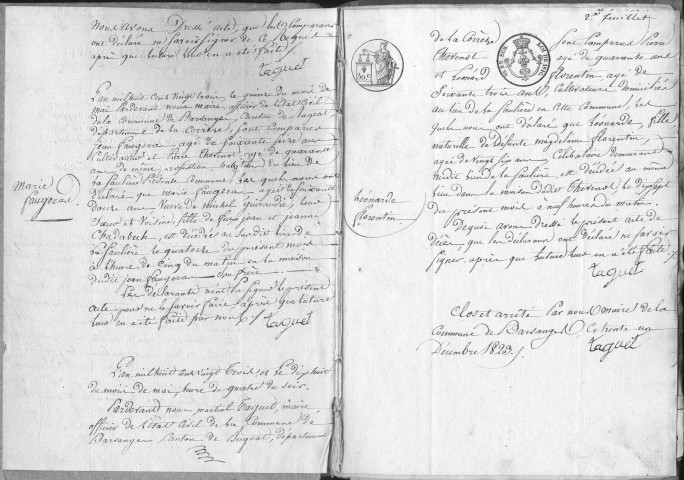 Nous avons Dressé acte, que les Comparans
ont déclaré ne savoir signer de ce Requis
après que lecture leur en a été faite
taguet
L'an mil huit cent vingt trois le quinze du mois de
mai Pardevant nous maire, officier de l'état Civil
de la Commune de Barsanges, Canton de Bugeat
département de la Corrèze, sont Comparus
jean faugeras, agé de soixante
Cultivateur et Pierre Chezenot, agé de quarante
ans de même profession habitans du lieu de
la faulière Susdite Commune, les quels nous ont
déclaré que marie faugeras, agée de soixante
Douze ans Veuve de michel, leur
Sœur et Voisine, fille de feus jean et jeanne
est décédée au susdit lieu de
la faulière, le quatorze du présent mois
à l'heure de Cinq du matin en la maison
dudit jean faugeras Son frère
Les déclarants n'ont pas signé le présent
acte pour ne le savoir faire après que lecture
leur en a été faite par nous
taguet
Marie
faugeras
L'an mil huit cent vingt trois et le dix huit
du mois de mai, heure de quatre du soir.
Pardevant nous martial taguet, maire
officier de l'état Civil de la Commune de
Barsanges Canton de Bugeat, département
2e feuillet
de la Corrèze Sont Comparus Pierre
Chezenot agé de quarante ans
et Léonard florentin, agé de
Soixante trois ans Cultivateurs domiciliés
au lieu de la faulière en Cette Commune, les
quels nous ont déclaré que Léonarde, fille
naturelle de Défunte magdeleine florentin
agée de Vingt six ans Célibataire demeurant
audit lieu de la faulière, est décédée au même
lieu dans la maison dudit Chezenot le dix sept
du présent mois à neuf heures du matin.
De quoi avons Dressé le présent acte de
Décès, que les Déclarans ont déclaré ne savoir
signer, après que lecture leur en a été faite
taguet
Léonarde
florentin
50 C.
Clos et arrêté Par nous maire de la
Commune de Barsanges Ce trente un
Décembre 1823.
taguet